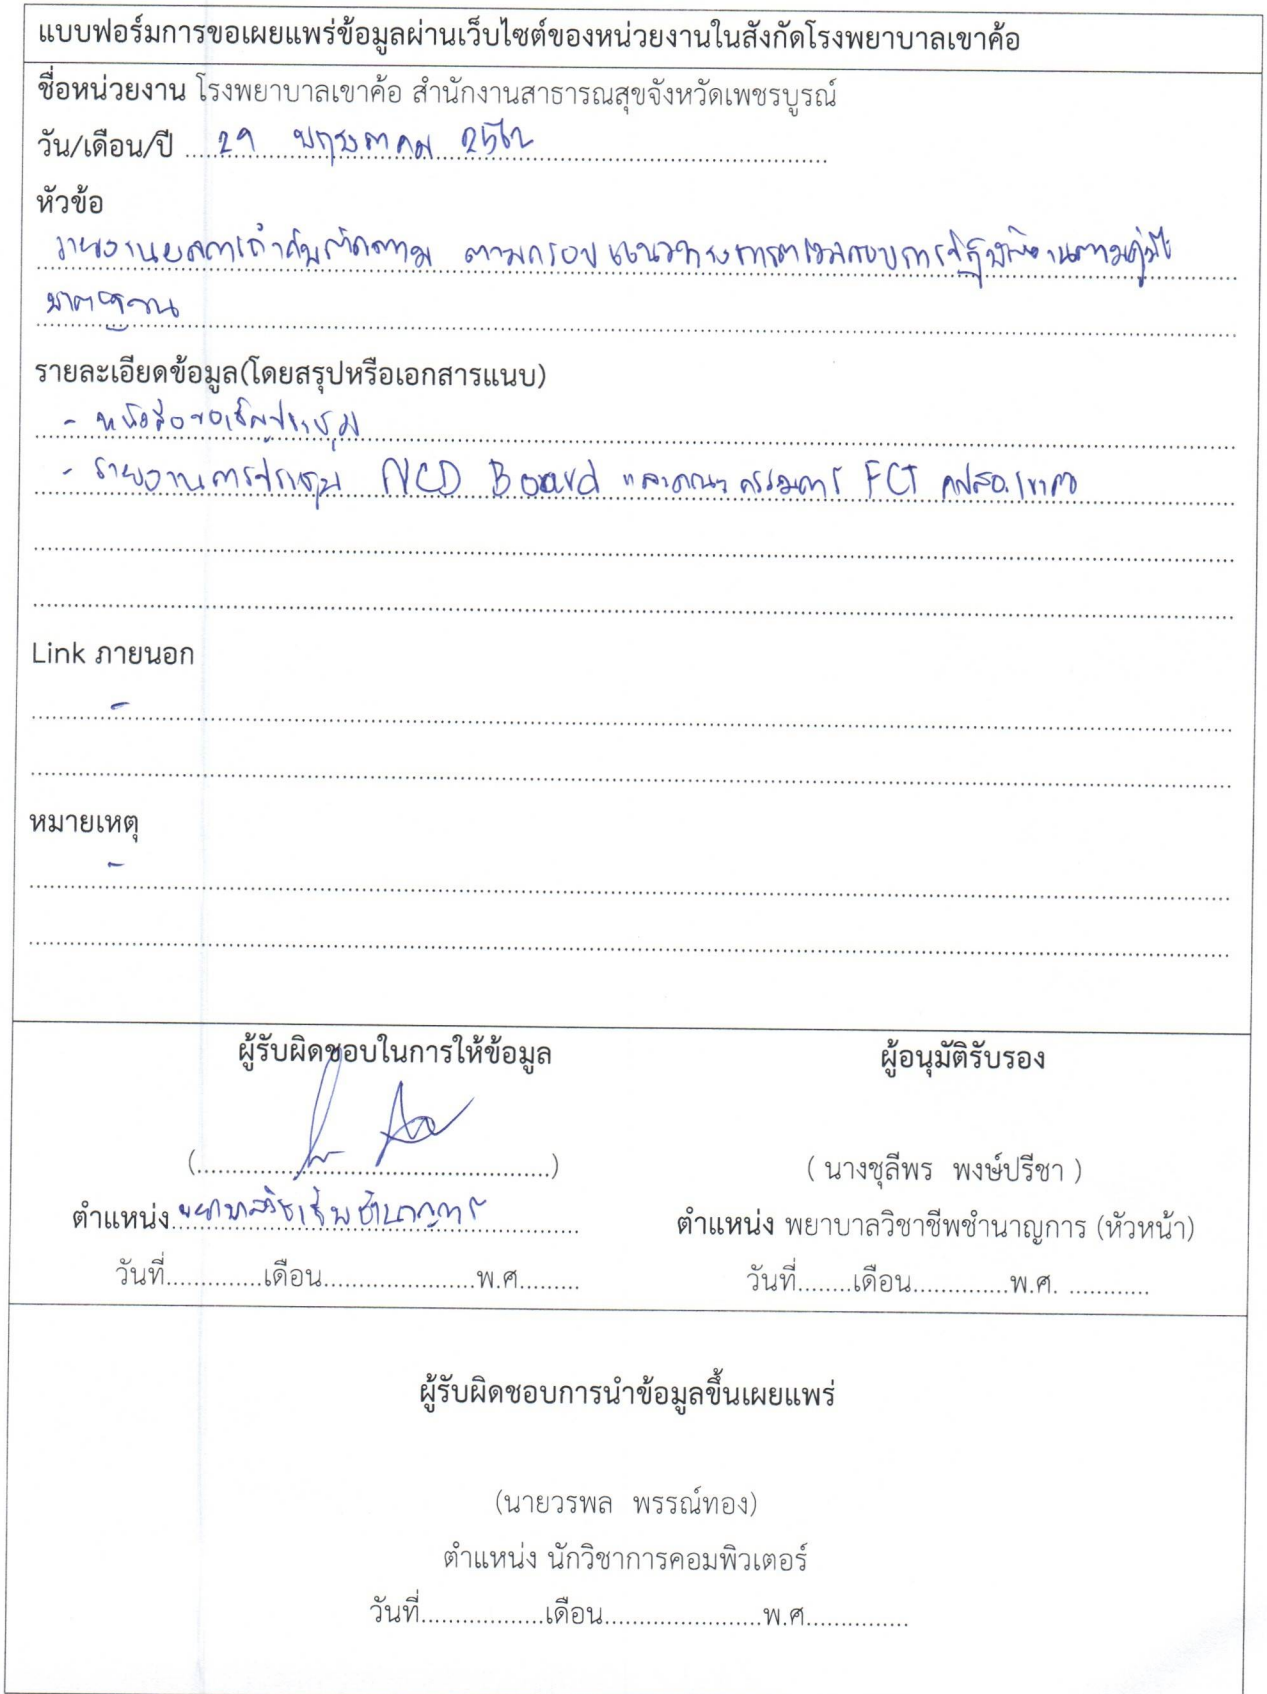 แบบฟอร์มการขอเผยแพร่ข้อมูลผ่านเว็บไซต์ของหน่วยงานในสังกัดโรงพยาบาลเขาค้อ
ชื่อหน่วยงาน โรงพยาบาลเขาค้อ สำนักงานสาธารณสุขจังหวัดเพชรบูรณ์
วัน/เดือน/ปี ....29 พฤษภาคม 2562....
หัวข้อ
รายงานผลการกำกับติดตาม ตามกรอบแนวทางการตรวจสอบการปฏิบัติงานตามคู่มือ
มาตรฐาน
รายละเอียดข้อมูล(โดยสรุปหรือเอกสารแนบ)
- หนังสือขอเชิญประชุม
- รายงานการประชุม NCD Board และคณะกรรมการ FCT คปสอ.เขาค้อ
Link ภายนอก
-
หมายเหตุ
-
ผู้รับผิดชอบในการให้ข้อมูล ผู้อนุมัติรับรอง
(....................) ( นางชุลีพร พงษ์ปรีชา )
ตำแหน่ง พยาบาลวิชาชีพชำนาญการ ตำแหน่ง พยาบาลวิชาชีพชำนาญการ (หัวหน้า)
วันที่..............เดือน.......................พ.ศ......... วันที่........เดือน..............พ.ศ. ............
ผู้รับผิดชอบการนำข้อมูลขึ้นเผยแพร่
(นายวรพล พรรณ์ทอง)
ตำแหน่ง นักวิชาการคอมพิวเตอร์
วันที่..................เดือน.......................พ.ศ...............